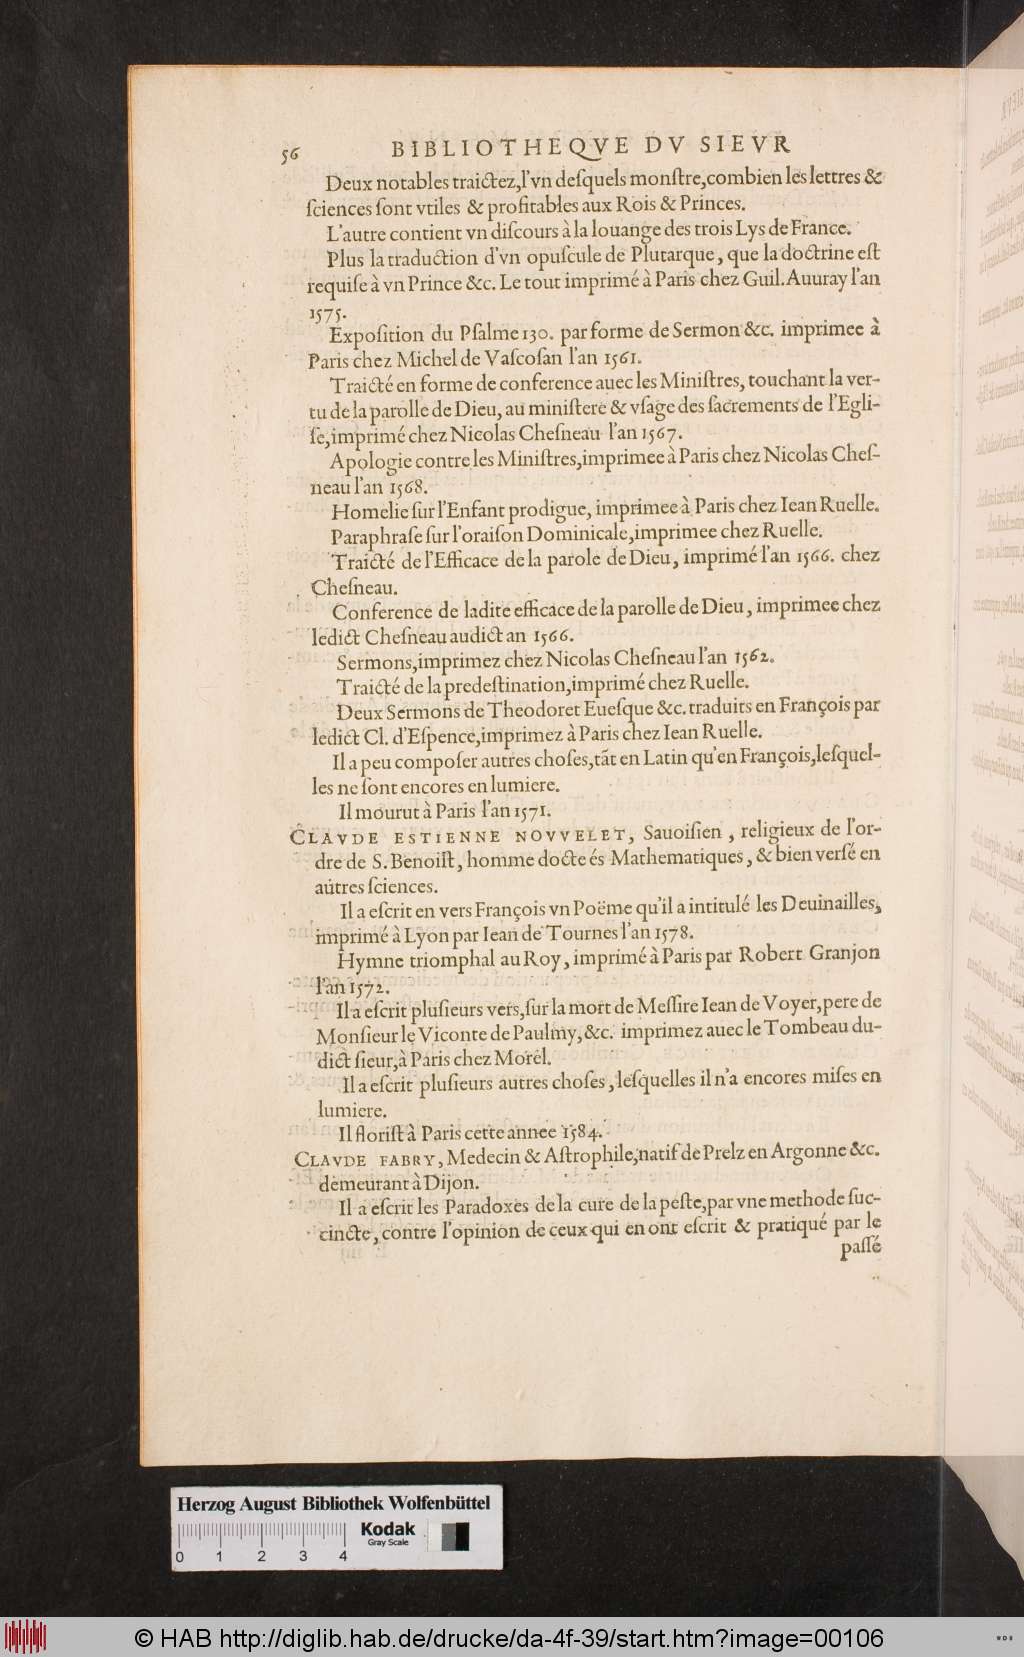 56 BIBLIOTHEQVE DV SIEVR
Deux notables traictez, l'vn deſquels monſtre, combien les lettres &
ſciences ſont vtiles & profitables aux Rois & Princes.
L'autre contient vn diſcours à la louange des trois Lys de France.
Plus la traduction d'vn opuſcule de Plutarque, que la doctrine eſt
requiſe à vn Prince &c. Le tout imprimé à Paris chez Guil. Auuray l'an
1575.
Expoſition du Pſalme 130. par forme de Sermon &c. imprimee à
Paris chez Michel de Vaſcoſan l'an 1561.
Traicté en forme de conference auec les Miniſtres, touchant la ver-
tu de la parolle de Dieu, au miniſtere & vſage des ſacrements de l'Egli-
ſe, imprimé chez Nicolas Cheſneau l'an 1567.
Apologie contre les Miniſtres, imprimee à Paris chez Nicolas Cheſ-
neau l'an 1568.
Homelie ſur l'Enfant prodigue, imprimee à Paris chez Iean Ruelle.
Paraphraſe ſur l'oraiſon Dominicale, imprimee chez Ruelle.
Traicté de l'Efficace de la parole de Dieu, imprimé l'an 1566. chez
Cheſneau.
Conference de ladite efficace de la parolle de Dieu, imprimee chez
ledict Cheſneau audict an 1566.
Sermons, imprimez chez Nicolas Cheſneau l'an 1562.
Traicté de la predeſtination, imprimé chez Ruelle.
Deux Sermons de Theodoret Eueſque &c. traduits en François par
ledict Cl. d'Eſpence, imprimez à Paris chez Iean Ruelle.
Il a peu compoſer autres choſes, tãt en Latin qu'en François, leſquel-
les ne ſont encores en lumiere.
Il mourut à Paris l'an 1571.
CLAVDE ESTIENNE NOVVELET, Sauoiſien, religieux de l'or-
dre de S. Benoiſt, homme docte és Mathematiques, & bien verſé en
autres ſciences.
Il a eſcrit en vers François vn Poëme qu'il a intitulé les Deuinailles,
imprimé à Lyon par Iean de Tournes l'an 1578.
Hymne triomphal au Roy, imprimé à Paris par Robert Granjon
l'an 1572.
Il a eſcrit pluſieurs vers, ſur la mort de Meſſire Iean de Voyer, pere de
Monſieur le Viconte de Paulmy, &c. imprimez auec le Tombeau du-
dict ſieur, à Paris chez Morel.
Il a eſcrit pluſieurs autres choſes, leſquelles il n'a encores miſes en
lumiere.
Il floriſt à Paris cette annee 1584.
CLAVDE FABRY, Medecin & Aſtrophile, natif de Prelz en Argonne &c.
demeurant à Dijon.
Il a eſcrit les Paradoxes de la cure de la peſte, par vne methode ſuc-
cincte, contre l'opinion de ceux qui en ont eſcrit & pratiqué par le
paſſé
Herzog August Bibliothek Wolfenbüttel
0 1 2 3 4 Kodak
Gray Scale
© HAB http://diglib.hab.de/drucke/da-4f-39/start.htm?image=00106